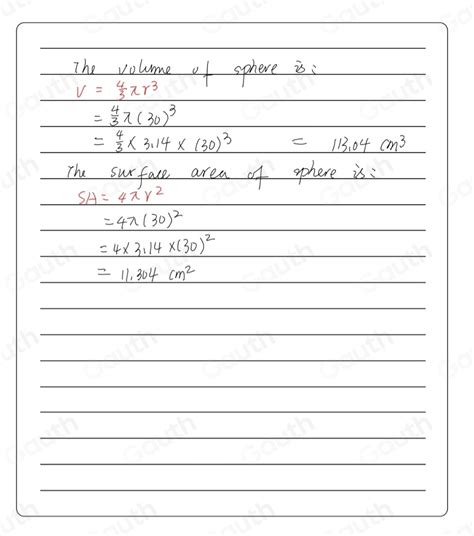 The volume of sphere is:
V = 4/3 πr³
= 4/3 π(30)³
= 4/3 × 3.14 × (30)³ = 113.04 cm³
The surface area of sphere is:
SA = 4πr²
= 4π(30)²
= 4×3.14×(30)²
= 11.304 cm²
Gauth